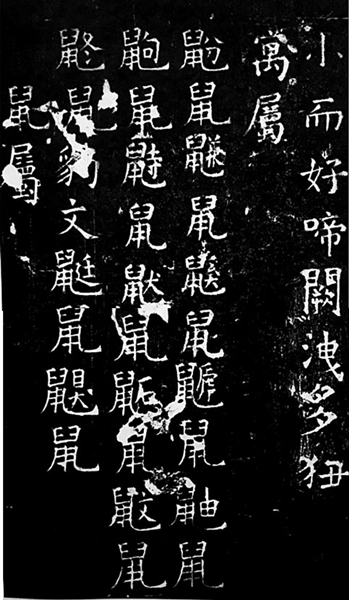 小而好啼闕洩多狃
寓屬
鼢鼠鼸鼠鼷鼠鼶鼠鼬鼠
鼩鼠鼭鼠鼣鼠鼫鼠鼤鼠
鼨鼠豹文鼮鼠鼰鼠
鼠屬